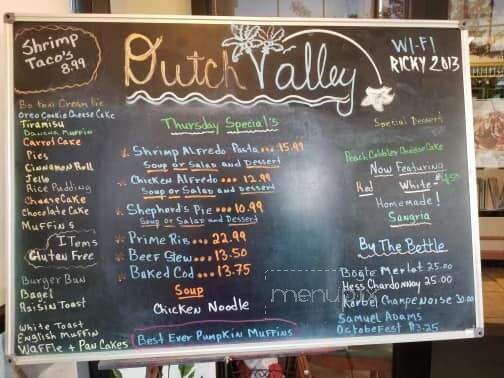 Shrimp
Taco's
8.99
Dutch Valley
WI-FI
RICKY 2013
Boston Cream Pie
Oreo Cookie Cheese Cake
Tiramisu
Banana Muffin
Carrot Cake
Pies
Cinnamon Roll
Jello
Rice Pudding
Cheese Cake
Chocolate Cake
Muffin's
Items
Gluten Free
Burger Bun
Bagel
Raisin Toast
White Toast
English Muffin
Waffle + Pan Cakes
Thursday Special's
Shrimp Alfredo Pasta ... 15.99
Soup or Salad and Dessert
Chicken Alfredo ... 12.99
Soup or Salad and Dessert
Shepherd's Pie ... 10.99
Soup or Salad and Dessert
Prime Rib ... 22.99
Beef Stew ... 13.50
Baked Cod ... 13.75
Soup
Chicken Noodle
Best Ever Pumpkin Muffins
Special Dessert
Peach Cobbler Cheese Cake
Now Featuring
Red White
Homemade!
Sangria
By The Bottle
Bogle Merlot 25.00
Hess Chardonnay 25.00
Korbel Champenoise 30.00
Samuel Adams
Octoberfest $3.25
menupix